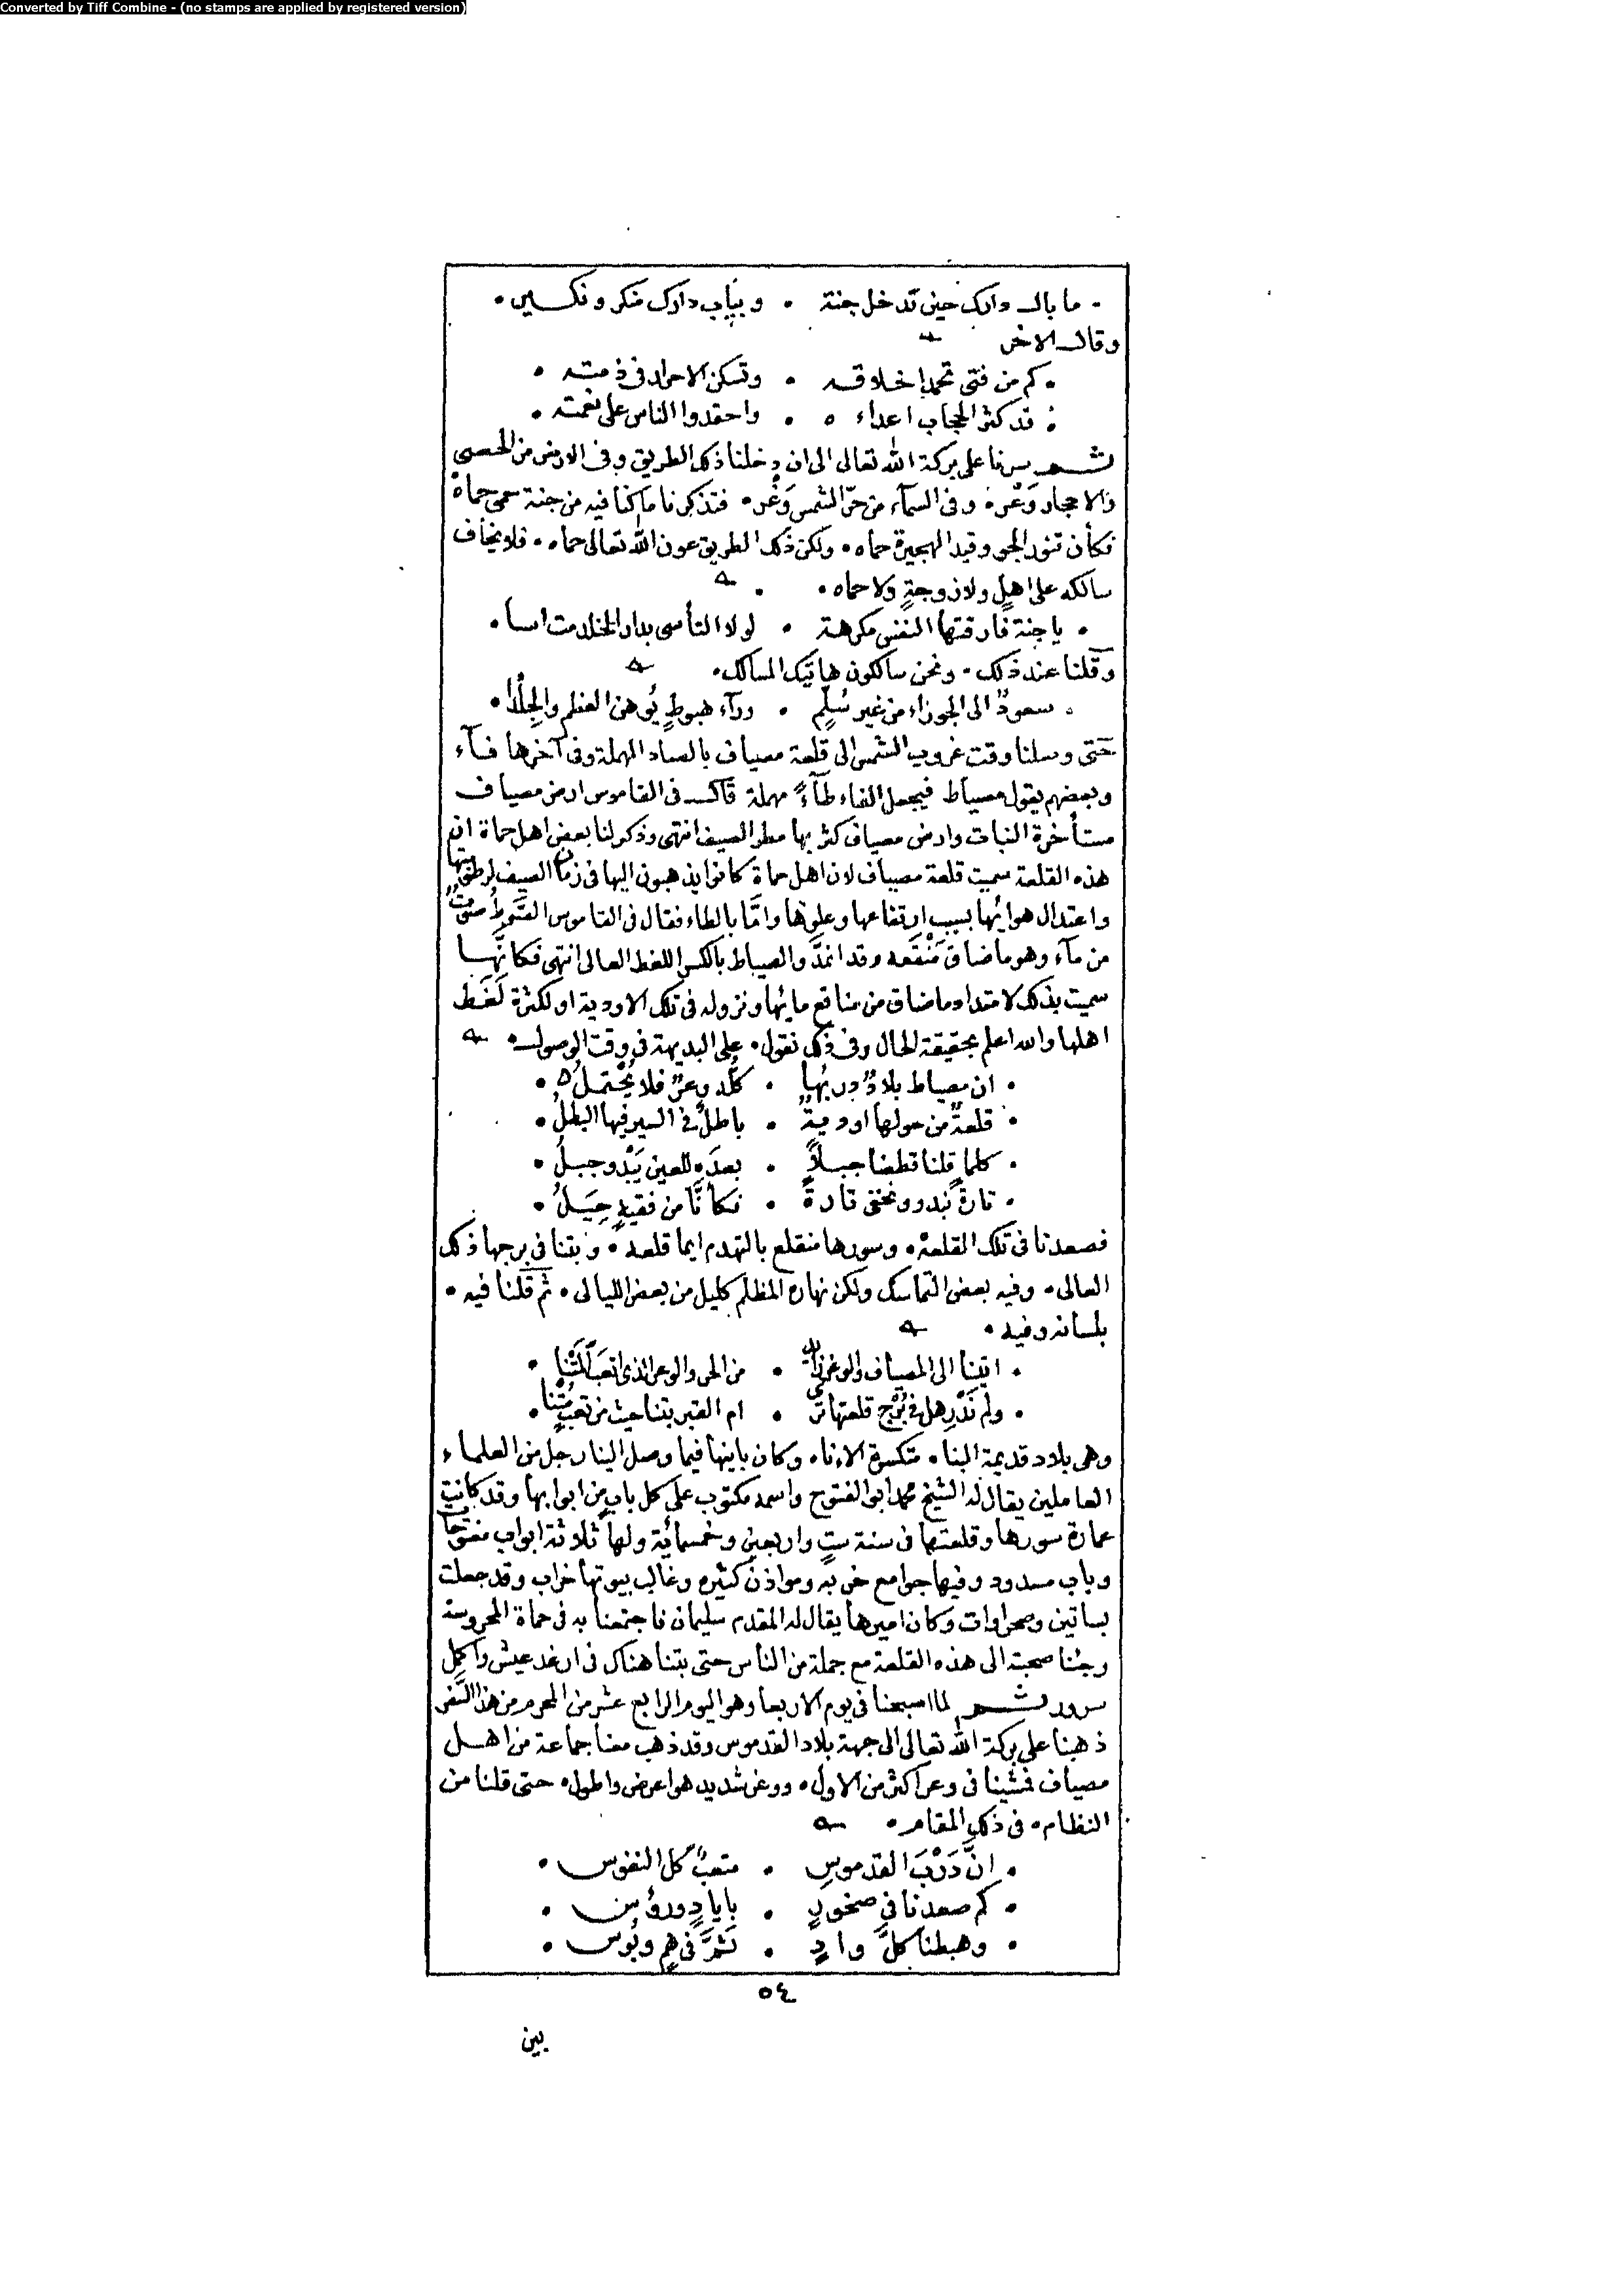 Converted by Tiff Combine - (no stamps are applied by registered version)
• ما بال دارك حين تدخل جنة • وبباب دارك منكر ونكير •
وقال الاخر
• كم من فتى تحمد اخلاقه • وتسكن الاحرار فى ذمته •
• قد كثر الحجاب اعداءه • واحقدوا الناس على نعمته •
ثم سرنا على بركة الله تعالى الى ان دخلنا ذلك الطريق وفى الارض من الحصى
والاحجار وَعْره • وفى السمآء من حرّ الشمس وَغْر • فتذكرنا ما كنا فيه من جنة حمى حماة
فكأن تنور الجو وقيد الهجيرة حماه • ولكن ذلك الطريق عون الله تعالى حماه • فلا يخاف
سالكه على اهلٍ ولا زوجةٍ ولا حماه •
• يا جنة فارقتها النفس مكرهة • لولا التأسى بدار الخلد مت اسا •
وقلنا عند ذلك • ونحن سالكون هاتيك المسالك •
• سعودٌ الى الجوزاء من غير سُلمٍ • ورآء هبوطٍ يُوهن العظم والجِلْدا •
حتى وصلنا وقت غروب الشمس الى قلعة مصياف بالصاد المهملة وفى آخرها فآء
وبعضهم يقول مصياط فيجعل الفاء طآءً مهملة قال فى القاموس ارض مصياف
مستأخرة النبات وارض مصياف كثر بها مطر الصيف انتهى وذكر لنا بعض اهل حماة ان
هذه القلعة سميت قلعة مصياف لان اهل حماة كانوا يذهبون اليها فى زمان الصيف لرطوبتها
واعتدال هوائها بسبب ارتفاعها وعلوها وامّا بالطاء فقال فى القاموس
من مآء وهو ما ضاق مَنْقَعه وقد انمدّ والصياط بالكسر اللغط العالى انتهى فكانّها
سميت بذلك لامتداد ما ضاق من مناقع مائها ونزوله فى تلك الاودية او لكثرة لَغَط
اهلها والله اعلم بحقيقة الحال وفى ذلك نقول • على البديهة فى وقت الوصول •
• ان مصياط بلادٌ دربُها • كلّه وعرٌ فلا يُحْتملُ •
• قلعةٌ من حولها اوديةٌ • باطلٌ فى السير فيها البطلُ •
• كلما قلنا قطعنا جبلاً • بعدَه للعين يَبْدو جبلُ •
• تارةً نبدو ونخفى تارةً • فكأنّا من فقيهٍ حِيَلُ •
فصعدنا فى تلك القلعة • وسورها منقلع بالتهدم ايما قلعه • وبتنا فى برجها ذلك
العالى • وفيه بعض التماسك ولكن نهاره المظلم كليل من بعض الليالى • ثم قلنا فيه •
بلسانه وفيه •
• اتينا الى المصياف والوغر زائد • من الحر والوعر الذى اتعبَ المَتْنا •
• ولم نَدْرِ هل فى بُرْج قلعتها ترى • ام القبر بتنا حيث من تعبٍ مُتْنا •
وهى بلاد قديمة البناه • متكسرة الاناه • وكان بانيها فيما وصل الينا رجل من العلماء
العاملين يقال له الشيخ محمد ابو الفتوح واسمه مكتوب على كل بابٍ من ابوابها وقد كانت
عمارة سورها وقلعتها فى سنة ستٍ واربعين وخمسمائة ولها ثلاثة ابواب مفتوحات
وباب مسدود وفيها جوامع خربه ومواذن كثيره وغالب بيوتها خراب وقد جعلت
بساتين وصحراوات وكان اميرها يقال له المقدم سليمان فاجتمعنا به فى حماة المحروسة
وجئنا صحبته الى هذه القلعة مع جملة من الناس حتى بتنا هناك فى ارغد عيش واكمل
سرور ثم لما اصبحنا فى يوم الاربعا وهو اليوم الرابع عشر من المحرم من هذا السَّفر
ذهبنا على بركة الله تعالى الى جهة بلاد القدموس وقد ذهب معنا جماعة من اهل
مصياف فمشينا فى وعر اكثر من الاول • ووغر شديد هو اعرض واطول • حتى قلنا من
النظام • فى ذلك المقام •
• انَّ دَرْبَ القدموسِ • متعبٌ كل النفوس •
• كم صعدنا فى صخورٍ • بايادٍ ورؤس •
• وهبطنا كلَّ وادٍ • نَشْرَ فى همٍ وبُوس •
٥٤
بين